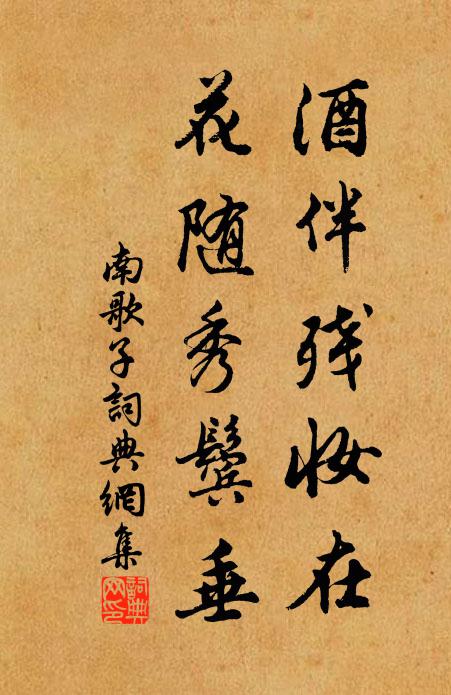 酒伴残妆在
花随秀鬓垂
南歌子詞典網集
詞典
网印